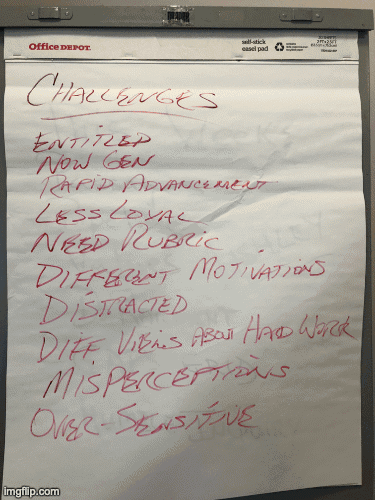 Office DEPOT.
self-stick
easel pad
CHALLENGES
ENTITLED
NOW GEN
RAPID ADVANCEMENT
LESS LOYAL
NEED RUBRIC
DIFFERENT MOTIVATIONS
DISTRACTED
DIFF VIEWS ABOUT HARD WORK
MISPERCEPTIONS
OVER-SENSITIVE
imgflip.com